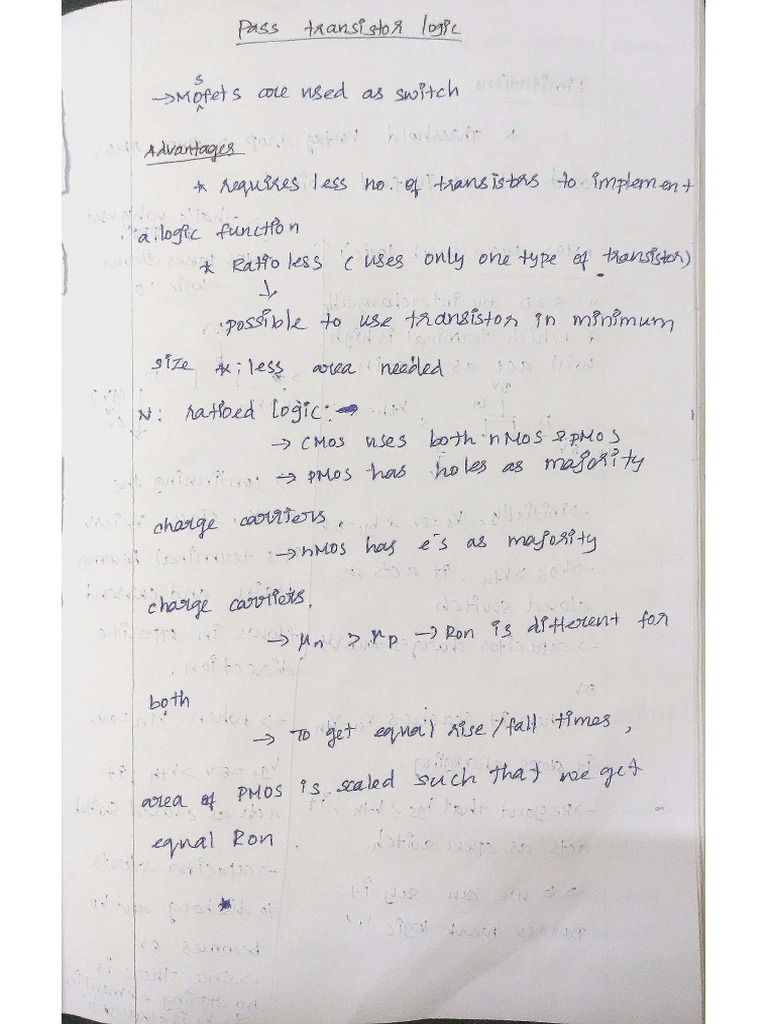 Pass transistor logic
→ MOSfets are used as switch
Advantages
* requires less no. of transistors to implement
a logic function
* Ratioless (uses only one type of transistor)
↓
possible to use transistor in minimum
size *; less area needed
N: ratioed logic: →
→ CMOS uses both nMOS & pMOS
→ pMOS has holes as majority
charge carriers.
→ nMOS has e⁻s as majority
charge carriers.
→ μn > μp → Ron is different for
both
→ To get equal rise/fall times,
area of PMOS is scaled such that we get
equal Ron.
*